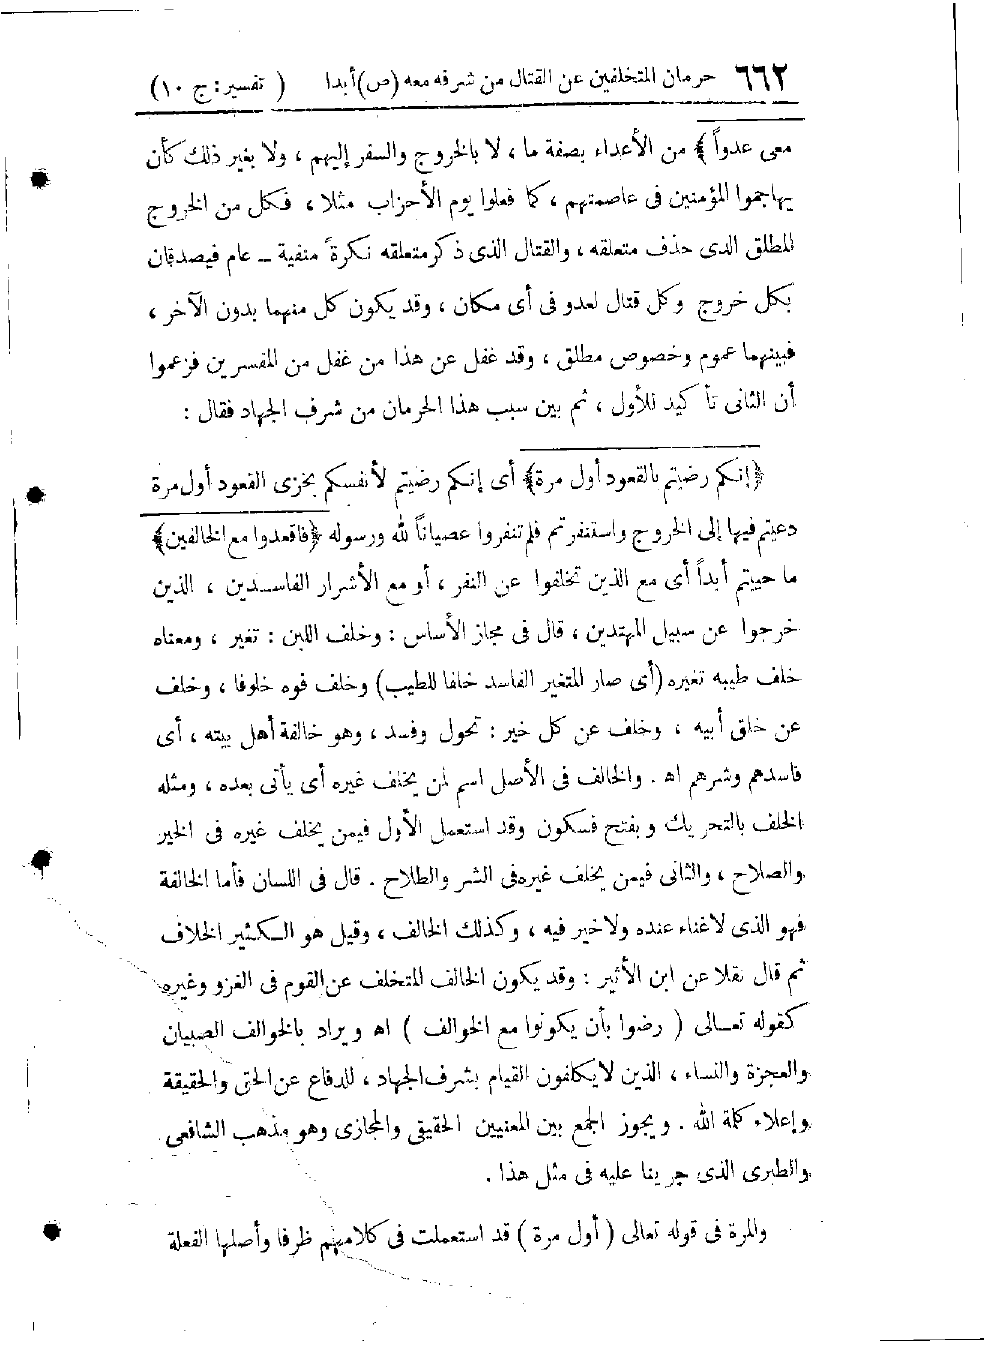 ٦٦٢ حرمان المتخلفين عن القتال من شرفه معه (ص) أبدا ( تفسير : ج ١٠ )
معى عدواً ﴾ من الأعداء بصفة ما ، لا بالخروج والسفر إليهم ، ولا بغير ذلك كأن
يهاجموا المؤمنين فى عاصمتهم ، كما فعلوا يوم الأحزاب مثلا ، فكل من الخروج
المطلق الذى حذف متعلقه ، والقتال الذى ذكر متعلقه نكرة منفية ــ عام فيصدقان
بكل خروج وكل قتال لعدو فى أى مكان ، وقد يكون كل منهما بدون الآخر ،
فبينهما عموم وخصوص مطلق ، وقد غفل عن هذا من غفل من المفسرين فزعموا
أن الثانى تأكيد للأول ، ثم بين سبب هذا الحرمان من شرف الجهاد فقال :
﴿ إنكم رضيتم بالقعود أول مرة ﴾ أى إنكم رضيتم لأنفسكم بخزى القعود أول مرة
دعيتم فيها إلى الخروج واستنفرتم فلم تنفروا عصياناً لله ورسوله ﴿ فاقعدوا مع الخالفين ﴾
ما حييتم أبداً أى مع الذين تخلفوا عن النفر ، أو مع الأشرار الفاســدين ، الذين
خرجوا عن سبيل المهتدين ، قال فى مجاز الأساس : وخلف اللبن : تغير ، ومعناه
خلف طيبه تغيره (أى صار المتغير الفاسد خلفا للطيب) وخلف فوه خلوفا ، وخلف
عن خلق أبيه ، وخلف عن كل خير : تحول وفسد ، وهو خالفة أهل بيته ، أى
فاسدهم وشرهم اه . والخالف فى الأصل اسم لمن يخلف غيره أى يأتى بعده ، ومثله
الخلف بالتحريك وبفتح فسكون وقد استعمل الأول فيمن يخلف غيره فى الخير
والصلاح ، والثانى فيمن يخلف غيره فى الشر والطلاح . قال فى اللسان فأما الخالفة
فهو الذى لا غناء عنده ولا خير فيه ، وكذلك الخالف ، وقيل هو الــكثير الخلاف
ثم قال نقلا عن ابن الأثير : وقد يكون الخالف المتخلف عن القوم فى الغزو وغيره
كقوله تعــالى ( رضوا بأن يكونوا مع الخوالف ) اه ويراد بالخوالف الصبيان
والعجزة والنساء ، الذين لا يكلفون القيام بشرف الجهاد ، للدفاع عن الحق والحقيقة
وإعلاء كلمة الله . ويجوز الجمع بين المعنيين الحقيقى والمجازى وهو مذهب الشافعى
والطبرى الذى جرينا عليه فى مثل هذا .
والمرة فى قوله تعالى ( أول مرة ) قد استعملت فى كلامهم ظرفا وأصلها الفعلة